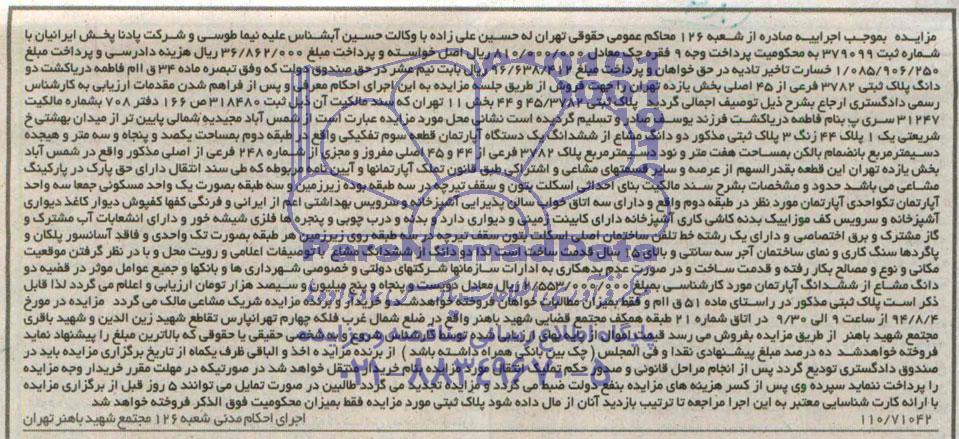 مزایده بموجب اجراییه صادره از شعبه ۱۲۶ محاکم عمومی حقوقی تهران له حسین علی زاده با وکالت حسین آبشناس علیه نیما طوسی و شرکت پادنا پخش ایرانیان با
شماره ثبت ۳۷۹۰۹۹ به محکومیت پرداخت وجه ۹ فقره چک معادل ۸۱۰/۰۰۰/۰۰۰ ریال اصل خواسته و پرداخت مبلغ ۳۶/۸۶۲/۰۰۰ ریال هزینه دادرسی و پرداخت مبلغ
۱/۰۸۵/۹۰۶/۲۵۰ خسارت تاخیر تادیه در حق خواهان و پرداخت مبلغ ۹۶/۶۳۸/۴۱۲ ریال بابت نیم عشر در حق صندوق دولت که وفق تبصره ماده ۳۴ ق اام فاطمه دریاکشت دو
دانگ پلاک ثبتی ۳۷۸۲ فرعی از ۴۵ اصلی بخش یازده تهران را جهت فروش از طریق جلسه مزایده به این اجرای احکام معرفی و پس از فراهم شدن مقدمات ارزیابی به کارشناس
رسمی دادگستری ارجاع بشرح ذیل توصیف اجمالی گردید. پلاک ثبتی ۴۵/۳۷۸۲ و ۴۴ بخش ۱۱ تهران که سند مالکیت آن ذیل ثبت ۳۱۸۴۸۰ ص ۱۶۶ دفتر ۷۰۸ بشماره مالکیت
۳۱۲۴۷ سری پ بنام فاطمه دریاکشت فرزند یوسف صادر و تسلیم گردیده است نشانی محل مورد مزایده عبارت است از شمس آباد مجیدیه شمالی پایین تر از میدان بهشتی خ
شریعتی یک ۱ پلاک ۴۴ زنگ ۳ پلاک ثبتی مذکور دو دانگ مشاع از ششدانگ یک دستگاه آپارتمان قطعه سوم تفکیکی واقع در طبقه دوم بمساحت یکصد و پنجاه و سه متر و هیجده
دسیمترمربع بانضمام بالکن بمساحت هفت متر و نود دسیمترمربع پلاک ۳۷۸۲ فرعی از ۴۴ و ۴۵ اصلی مفروز و مجزی از شماره ۲۴۸ فرعی از اصلی مذکور واقع در شمس آباد
بخش یازده تهران این قطعه بقدرالسهم از عرصه و سایر قسمتهای مشاعی و اشتراکی طبق قانون تملک آپارتمانها و آیین نامه مربوطه که طی سند انتقال دارای حق پارک در پارکینگ
مشاعی می باشد حدود و مشخصات بشرح سند مالکیت بنای احداثی اسکلت بتون و سقف تیرچه در سه طبقه بوده زیرزمین و سه طبقه بصورت یک واحد مسکونی جمعا سه واحد
آپارتمان تکواحدی آپارتمان مورد نظر در طبقه دوم واقع و دارای سه اتاق خواب سالن پذیرایی آشپزخانه و سرویس بهداشتی اعم از ایرانی و فرنگی کفها کفپوش دیوار کاغذ دیواری
آشپزخانه و سرویس کف موزاییک بدنه کاشی کاری آشپزخانه دارای کابینت زمینی و دیواری دارد و بدنه و درب چوبی و پنجره ها فلزی شیشه خور و دارای انشعابات آب مشترک و
گاز مشترک و برق اختصاصی و دارای یک رشته خط تلفن ساختمان اصلی اسکلت بتون سقف تیرچه در سه طبقه روی زیرزمین هر طبقه بصورت تک واحدی و فاقد آسانسور پلکان و
پاگردها سنگ کاری و نمای ساختمان آجر سه سانتی و بالای ۱۵ سال قدمت ساخت است لذا دو دانگ از ششدانگ مشاع با توصیفات اعلامی و رویت محل و با در نظر گرفتن موقعیت
مکانی و نوع و مصالح بکار رفته و قدمت ساخت و در صورت عدم بدهکاری به ادارات سازمانها شرکتهای دولتی و خصوصی شهرداری ها و بانکها و جمیع عوامل موثر در قضیه دو
دانگ مشاع از ششدانگ آپارتمان مورد کارشناسی بمبلغ ۲/۵۵۳/۰۰۰/۰۰۰ ریال معادل دویست و پنجاه و پنج میلیون و سیصد هزار تومان ارزیابی و اعلام می گردد لذا قابل
ذکر است پلاک ثبتی مذکور در راستای ماده ۵۱ ق اام و فقط بمیزان مطالبات خواهان فروخته خواهدشد و برنده مزایده شریک مشاعی مالک می گردد مزایده در مورخ
۹۴/۸/۴ از ساعت ۹ الی ۹/۳۰ در اتاق شماره ۲۱ طبقه همکف مجتمع قضایی شهید باهنر واقع در ضلع شمال غرب فلکه چهارم تهرانپارس تقاطع شهید زین الدین و شهید باقری
مجتمع شهید باهنر از طریق مزایده بفروش می رسد قیمت پایه از مبلغهای ارزیابی شده توسط کارشناس شروع و به شخصی حقیقی یا حقوقی که بالاترین مبلغ را پیشنهاد نماید
فروخته خواهدشد ده درصد مبلغ پیشنهادی نقدا و فی المجلس (چک بین بانکی همراه داشته باشد) از برنده مزایده اخذ و الباقی ظرف یکماه از تاریخ برگزاری مزایده باید در
صندوق دادگستری تودیع گردد پس از انجام مراحل قانونی و صدور حکم تملیک انتقال مورد مزایده بنام خریدار منتقل خواهد شد در صورتیکه در مهلت مقرر خریدار وجه مزایده
را پرداخت ننماید سپرده وی پس از کسر هزینه های مزایده بنفع دولت ضبط می گردد و مزایده تجدید می گردد طالبین در صورت تمایل می توانند ۵ روز قبل از برگزاری مزایده
با ارائه کارت شناسایی معتبر به این اجرا مراجعه تا ترتیب بازدید آنان از مال داده شود پلاک ثبتی مورد مزایده فقط بمیزان محکومیت فوق الذکر فروخته خواهد شد
۱۱۰/۷۱۰۴۲ اجرای احکام مدنی شعبه ۱۲۶ مجتمع شهید باهنر تهران
ParsNamadData
پایگاه اطلاع رسانی مناقصه و مزایده
۰۲۱-۸۸۳۴۹۶۷۰-۵